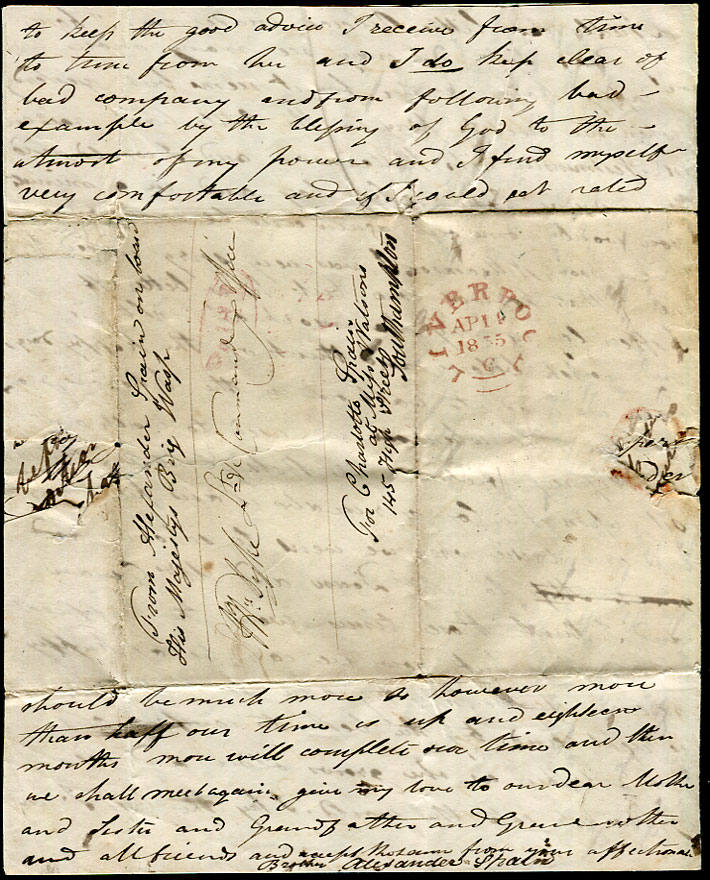 to keep the good advice I receive from time
to time from her and I do keep clear of
bad company and from following bad
example by the blessing of God to the
utmost of my power and I find myself
very comfortable and if I could get rated
From Alexander Spain on board
His Majestys Brig Wasp
Wm Pyke Lt & Commanding Officer
For Charlotte Spain
at Miss Watsons
145 High Street
Southampton
LIVERPOOL
AP 1
1835
C
should be much more so however more
than half our time is up and eighteen
months more will complete our time and then
we shall meet again give my love to our dear Mother
and Sister and Grandfather and Grandmother
and all friends and accept the same from your affectionate
Brother Alexander Spain